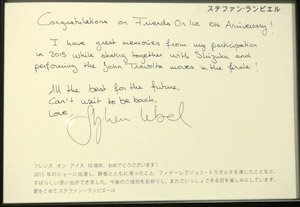 ステファン・ランビエル
Congratulations on Friends On Ice 10th Anniversary!
I have great memories from my participation
in 2015 while skating together with Shizuka and
performing the John Travolta moves in the finale!
All the best for the future,
Can't wait to be back,
Love,
フレンズ オン アイス 10周年、おめでとうございます!
2015年のショーに出演し、静香とともに滑ったこと、フィナーレでジョン・トラボルタを演じたことなど、
すばらしい思い出ができました。今後のご成功をお祈りし、またごいっしょできる日を楽しみにしています。
愛をこめて ステファン・ランビエール